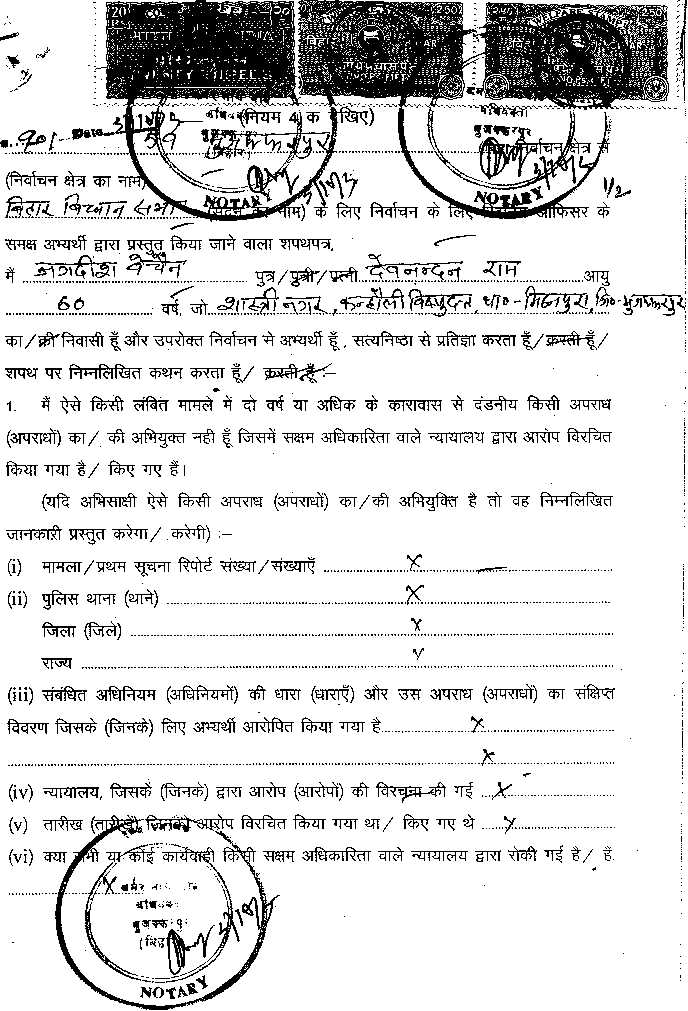 (नियम 4 क देखिए)
59 मुजफ्फरपुर निर्वाचन क्षेत्र से
(निर्वाचन क्षेत्र का नाम)
NOTARY
1/2
बिहार विधान सभा (सदन का नाम) के लिए निर्वाचन के लिए ऑफिसर के
समक्ष अभ्यर्थी द्वारा प्रस्तुत किया जाने वाला शपथपत्र,
मैं जगदीश बेचैन पुत्र/पुत्री/पत्नी देवनन्दन राम आयु
60 वर्ष, जो शास्त्री नगर, कन्हौली विशुदत, था०-मिठनपुरा, जि०-मुजफ्फरपुर
का/की निवासी हूँ और उपरोक्त निर्वाचन मे अभ्यर्थी हूँ, सत्यनिष्ठा से प्रतिज्ञा करता हूँ/करती हूँ/
शपथ पर निम्नलिखित कथन करता हूँ/ करती हूँ :–
1. मैं ऐसे किसी लंबित मामले में दो वर्ष या अधिक के कारावास से दंडनीय किसी अपराध
(अपराधों) का/ की अभियुक्त नही हूँ जिसमें सक्षम अधिकारिता वाले न्यायालय द्वारा आरोप विरचित
किया गया है/ किए गए हैं।
(यदि अभिसाक्षी ऐसे किसी अपराध (अपराधों) का/की अभियुक्ति है तो वह निम्नलिखित
जानकारी प्रस्तुत करेगा/ करेगी) :–
(i) मामला/प्रथम सूचना रिपोर्ट संख्या/संख्याएँ X
(ii) पुलिस थाना (थाने) X
जिला (जिले) X
राज्य X
(iii) संबंधित अधिनियम (अधिनियमों) की धारा (धाराएँ) और उस अपराध (अपराधों) का संक्षिप्त
विवरण जिसके (जिनके) लिए अभ्यर्थी आरोपित किया गया है X
X
(iv) न्यायालय, जिसके (जिनके) द्वारा आरोप (आरोपों) की विरचना की गई X
(v) तारीख (तारीखें) जिनको आरोप विरचित किया गया था/ किए गए थे X
(vi) क्या सभी या कोई कार्यवाही किसी सक्षम अधिकारिता वाले न्यायालय द्वारा रोकी गई है/ हैं.
X
NOTARY